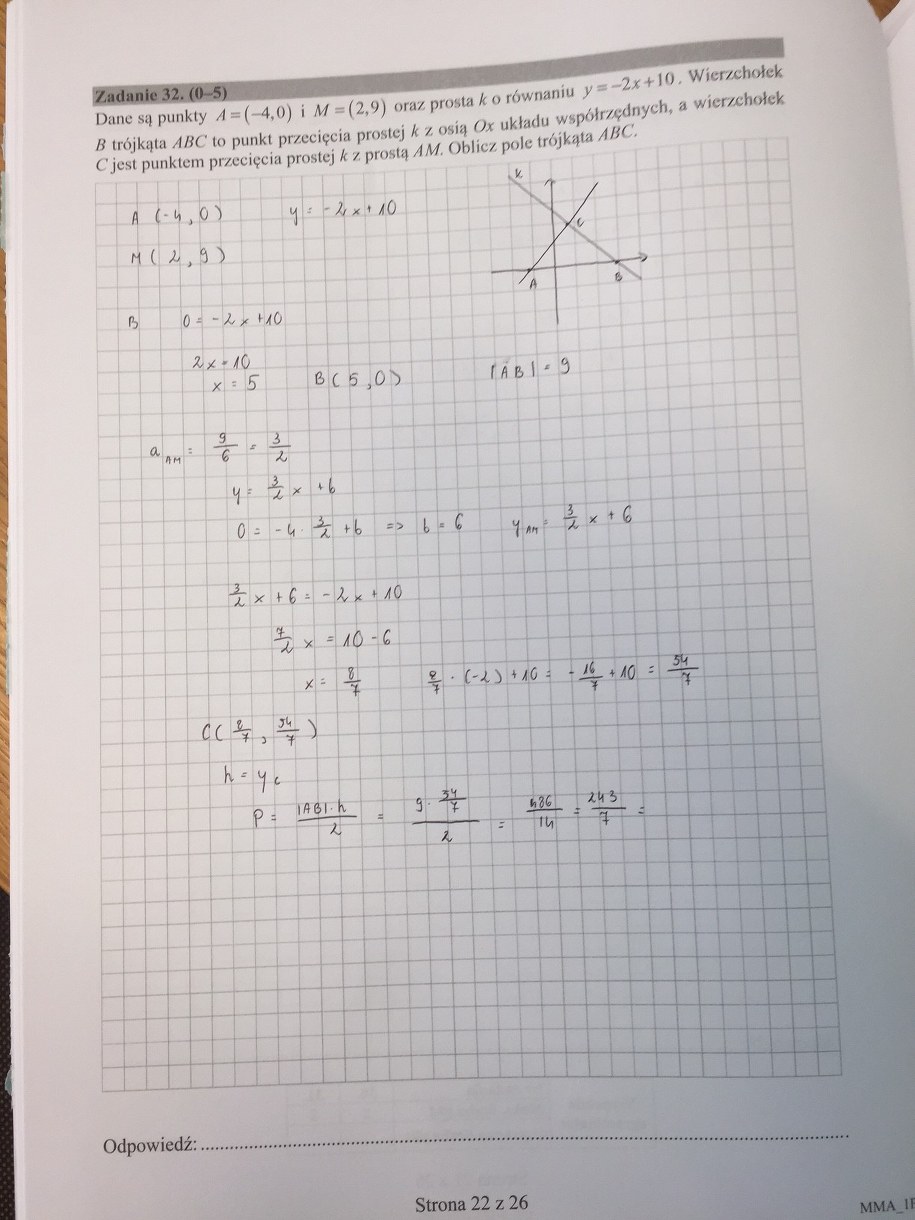 Zadanie 32. (0–5)
Dane są punkty A=(−4,0) i M=(2,9) oraz prosta k o równaniu y=−2x+10. Wierzchołek
B trójkąta ABC to punkt przecięcia prostej k z osią Ox układu współrzędnych, a wierzchołek
C jest punktem przecięcia prostej k z prostą AM. Oblicz pole trójkąta ABC.
k
A (-4,0) y = -2x+10
C
M(2,9)
A B
B 0 = -2x+10
2x=10
x = 5 B(5,0) |AB| = 9
a_AM = 9/6 = 3/2
y = 3/2 x + b
0 = -4 · 3/2 + b => b = 6 y_AM = 3/2 x + 6
3/2 x + 6 = -2x + 10
7/2 x = 10 - 6
x = 8/7 8/7 · (-2) + 10 = -16/7 + 10 = 54/7
C(8/7, 54/7)
h = y_c
P = |AB|·h/2 = 9·54/7/2 = 486/14 = 243/7 =
Odpowiedź:
Strona 22 z 26